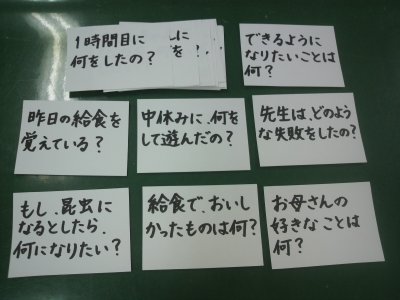 1時間目に
何をしたの？
に
を？
できるように
なりたいことは
何？
昨日の給食を
覚えている？
中休みに、何を
して遊んだの？
先生は、どのよう
な失敗をしたの？
もし、昆虫に
なるとしたら、
何になりたい？
給食で、おいし
かったものは何？
お母さんの
好きなことは
何？